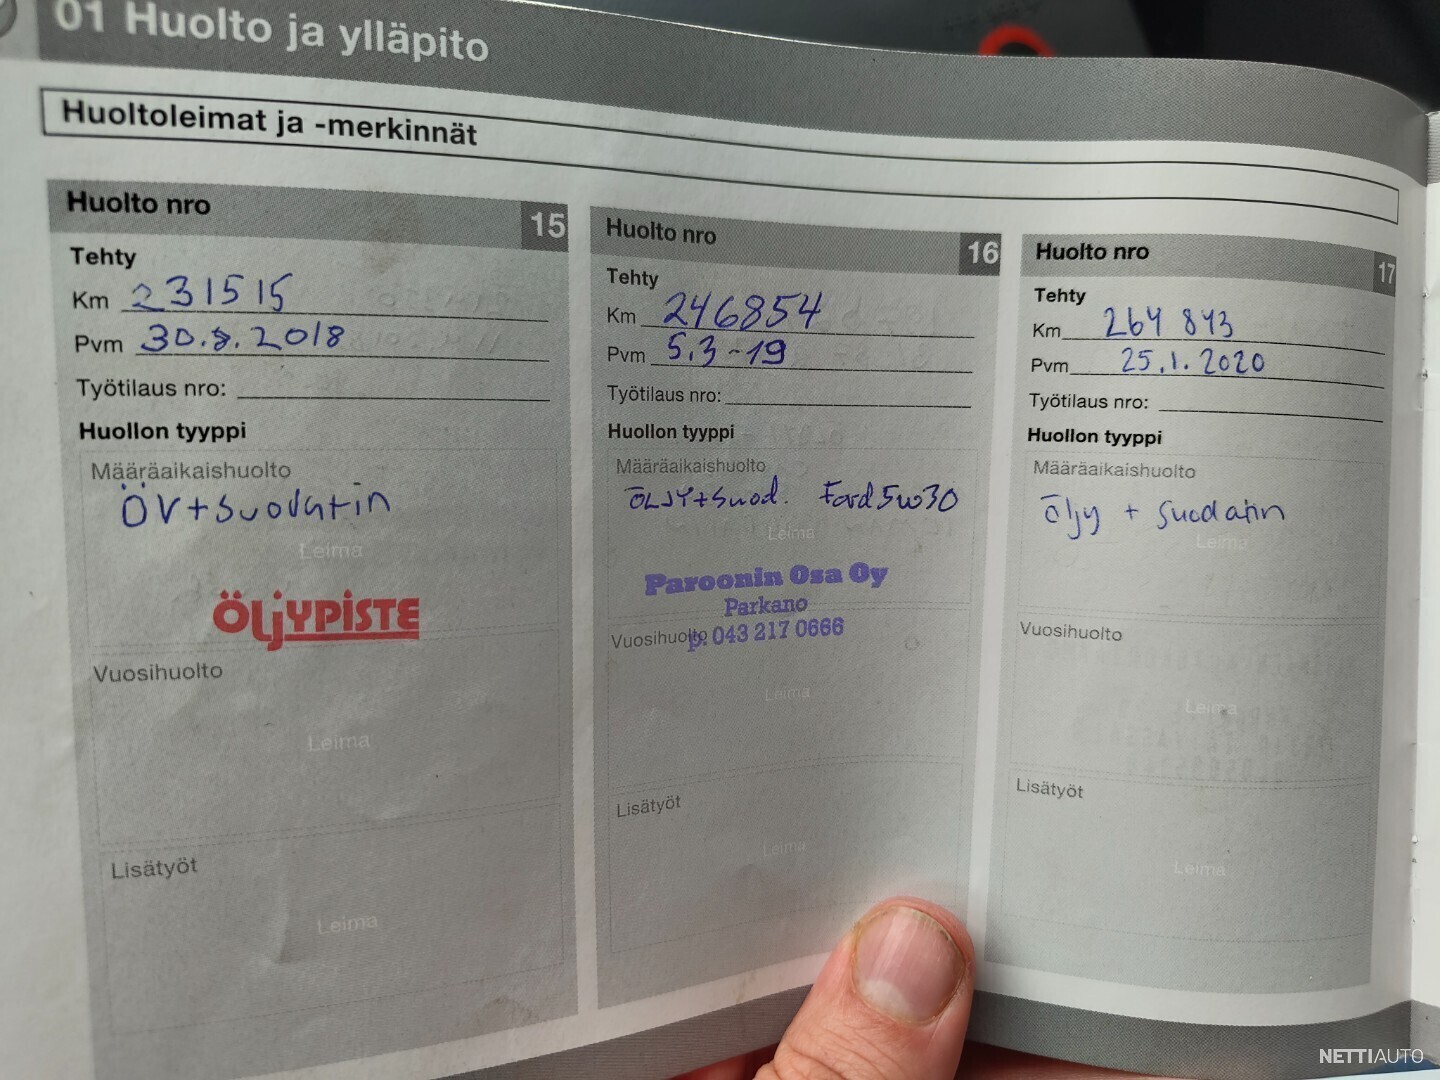 01 Huolto ja ylläpito
Huoltoleimat ja -merkinnät
Huolto nro 15
Tehty
Km 231515
Pvm 30.8.2018
Työtilaus nro:
Huollon tyyppi
Määräaikaishuolto
ÖV+suodatin
Leima
ÖLJYPISTE
Vuosihuolto
Leima
Lisätyöt
Leima
Huolto nro 16
Tehty
Km 246854
Pvm 5.3-19
Työtilaus nro:
Huollon tyyppi
Määräaikaishuolto
ÖLJY+Suod. Ford 5w30
Leima
Paroonin Osa Oy
Parkano
p. 043 217 0666
Vuosihuolto
Leima
Lisätyöt
Leima
Huolto nro 17
Tehty
Km 264 843
Pvm 25.1.2020
Työtilaus nro:
Huollon tyyppi
Määräaikaishuolto
Öljy + Suodatin
Leima
Vuosihuolto
Leima
Lisätyöt
Leima
NETTIAUTO